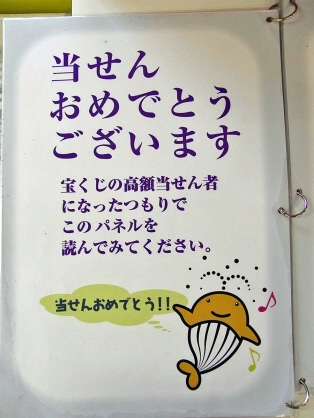 当せん
おめでとう
ございます
宝くじの高額当せん者
になったつもりで
このパネルを
読んでみてください。
当せんおめでとう!!